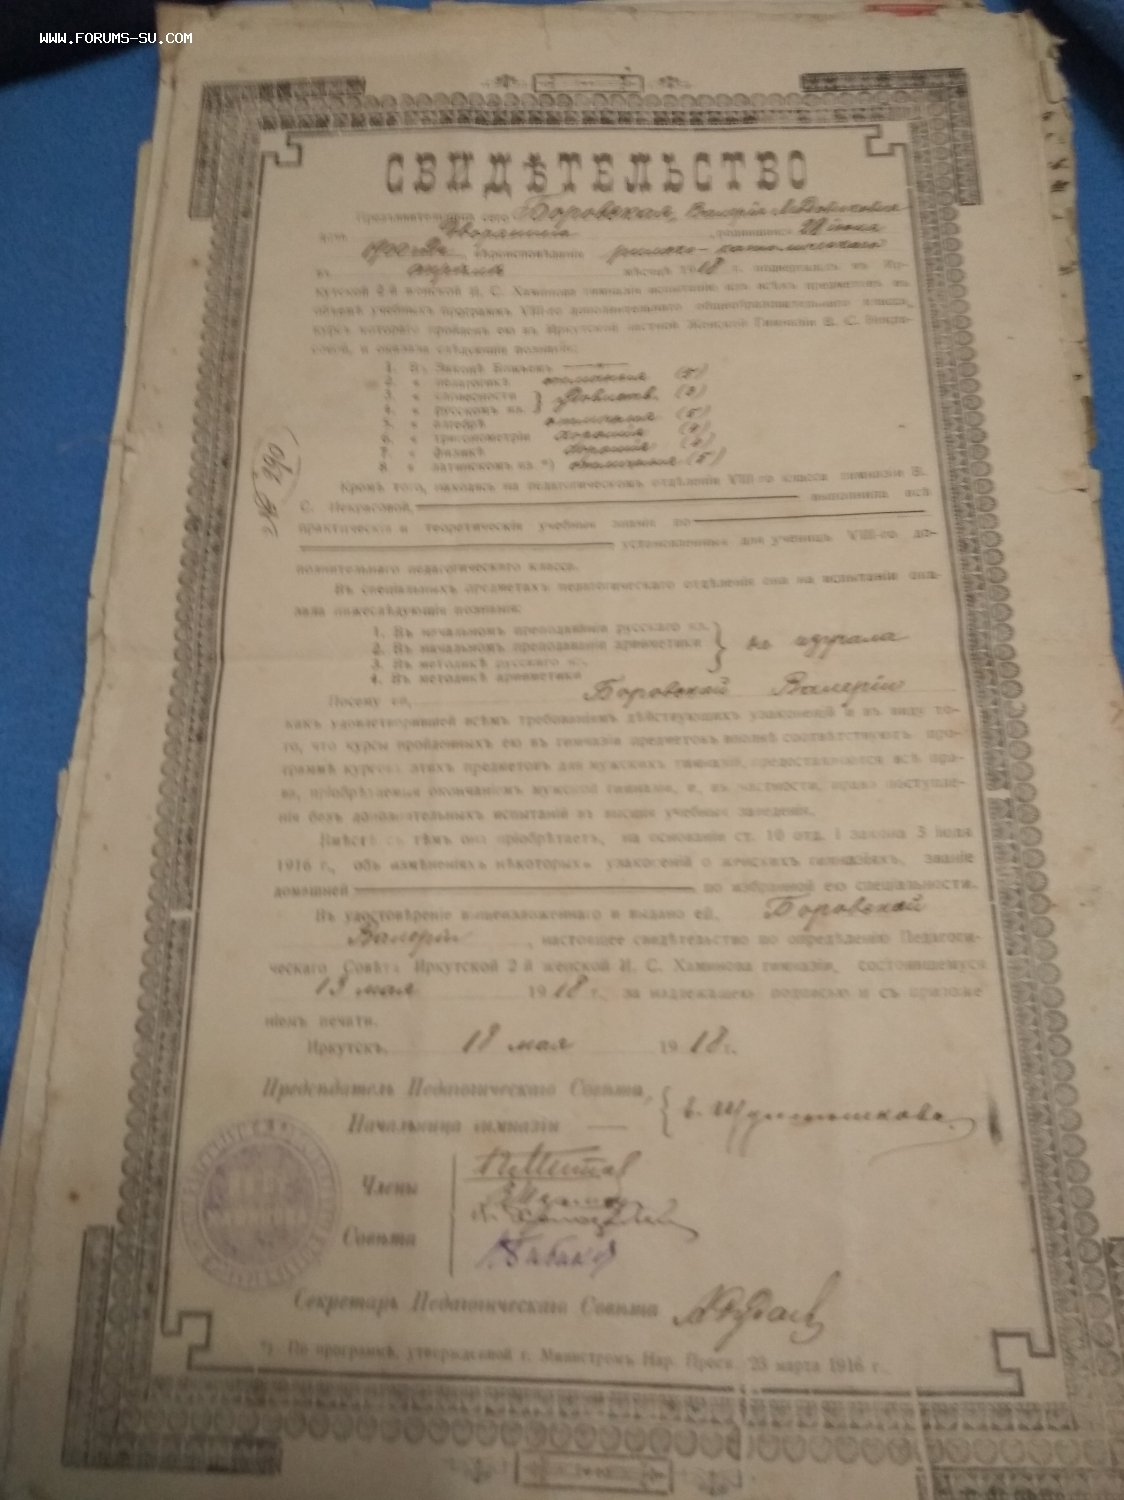 www.forums-su.com
СВИДѢТЕЛЬСТВО
Предъявительница сего Боровская, Валерія
дочь дворянина, родившаяся 28 іюня
1900 года, вѣроисповѣданія римско-католическаго
въ апрѣлѣ мѣсяцѣ 1918 г. подвергалась въ Ир-
кутской 2-й женской И. С. Хаминова гимназіи испытанію изъ всѣхъ предметовъ въ
объемѣ учебныхъ программъ VIII-го дополнительнаго общеобразовательнаго класса,
курсъ котораго пройденъ ею въ Иркутской частной Женской Гимназіи В. С. Некра-
совой, и оказала слѣдующія познанія:
1. Въ Законѣ Божіемъ
2. « педагогикѣ отличныя (5)
3. « словесности } удовлетв. (3)
4. « русскомъ яз.
5. « алгебрѣ отличныя (5)
6. « тригонометріи хорошія (4)
7. « физикѣ хорошія (4)
8. « латинскомъ яз. *) отличныя (5)
№ 290
Кромѣ того, находясь на педагогическомъ отдѣленіи VIII-го класса гимназіи В.
С. Некрасовой, выполнила всѣ
практическія и теоретическія учебныя занятія по
установленныя для ученицъ VIII-го до-
полнительнаго педагогическаго класса.
Въ спеціальныхъ предметахъ педагогическаго отдѣленія она на испытаніи ока-
зала нижеслѣдующія познанія:
1. Въ начальномъ преподаваніи русскаго яз.
2. Въ начальномъ преподаваніи ариѳметики } не изучала
3. Въ методикѣ русскаго яз.
4. Въ методикѣ ариѳметики
Посему ей, Боровской Валеріи
какъ удовлетворившей всѣмъ требованіямъ дѣйствующихъ узаконеній и въ виду то-
го, что курсы пройденныхъ ею въ гимназіи предметовъ вполнѣ соотвѣтствуютъ про-
граммѣ курсовъ этихъ предметовъ для мужскихъ гимназій, предоставляются всѣ пра-
ва, пріобрѣтаемыя окончаніемъ мужской гимназіи, и, въ частности, право поступле-
нія безъ дополнительныхъ испытаній въ высшія учебныя заведенія.
Вмѣстѣ съ тѣмъ она пріобрѣтаетъ, на основаніи ст. 10 отд. I закона 3 іюля
1916 г., объ измѣненіяхъ нѣкоторыхъ узаконеній о женскихъ гимназіяхъ, званіе
домашней по избранной ею спеціальности.
Въ удостовѣреніе вышеизложеннаго и выдано ей, Боровской
Валеріи, настоящее свидѣтельство по опредѣленію Педагоги-
ческаго Совѣта Иркутской 2-й женской И. С. Хаминова гимназіи, состоявшемуся
13 мая 1918 г., за надлежащею подписью и съ приложе-
ніемъ печати.
Иркутскъ, 18 мая 1918 г.
Предсѣдатель Педагогическаго Совѣта,
Начальница гимназіи
Члены
Совѣта
Секретарь Педагогическаго Совѣта
*) По программѣ, утвержденной г. Министромъ Нар. Просв. 23 марта 1916 г.